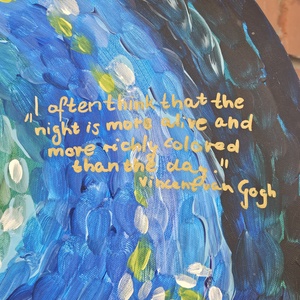 "I often think that the
night is more alive and
more richly colored
than the day."
Vincent van Gogh